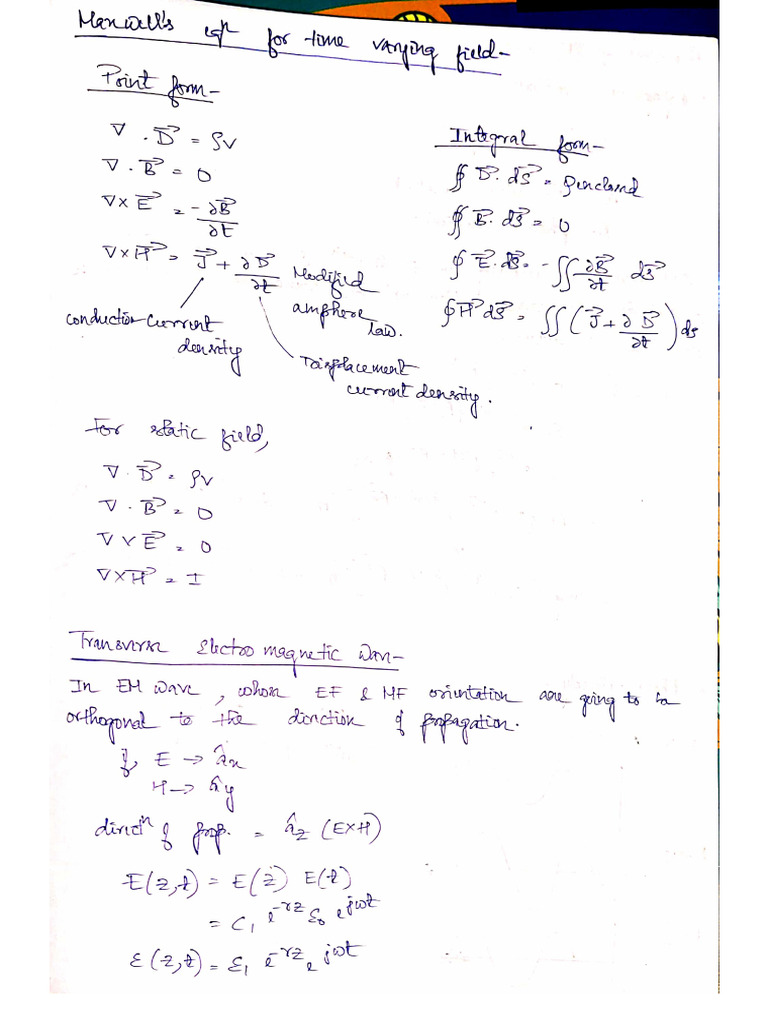 Maxwell's eqn for time varying field-
Point form-
∇ . D⃗ = ρv
∇ . B⃗ = 0
∇ × E⃗ = -∂B⃗/∂t
∇ × H⃗ = J⃗ + ∂D⃗/∂t Modified
amphere
law.
conduction current
density
Displacement
current density.
Integral form-
∯ D⃗. ds⃗ = Qenclosed
∯ B⃗. ds⃗ = 0
∮ E⃗. ds⃗ = -∬ ∂B⃗/∂t ds⃗
∮ H⃗ ds⃗ = ∬ (J⃗ + ∂D⃗/∂t) ds
For static field,
∇ . D⃗ = ρv
∇ . B⃗ = 0
∇ × E⃗ = 0
∇ × H⃗ = I
Transverse Electro magnetic wave-
In EM wave, whose EF & MF orientation are going to be
orthogonal to the direction of propagation.
if, E → âx
H → ây
directn of prop. = âz (E×H)
E(z,t) = E(z) E(t)
= C₁ e^-γz E₀ e^jωt
E(z,t) = E₁ e^-γz e^jωt